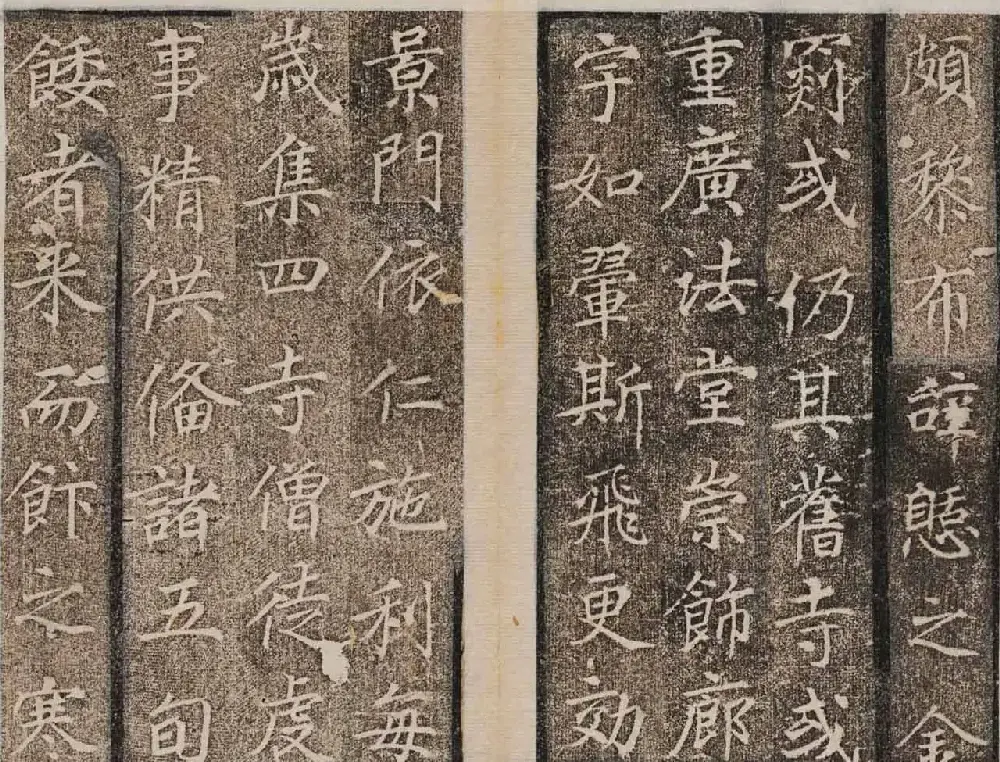 頗黎布懸之金
或仍其舊寺或
重廣法堂崇飾廊
宇如翬斯飛更効
景門依仁施利每
歲集四寺僧徒虔
事精供俻諸五旬
餧者来而飰之寒